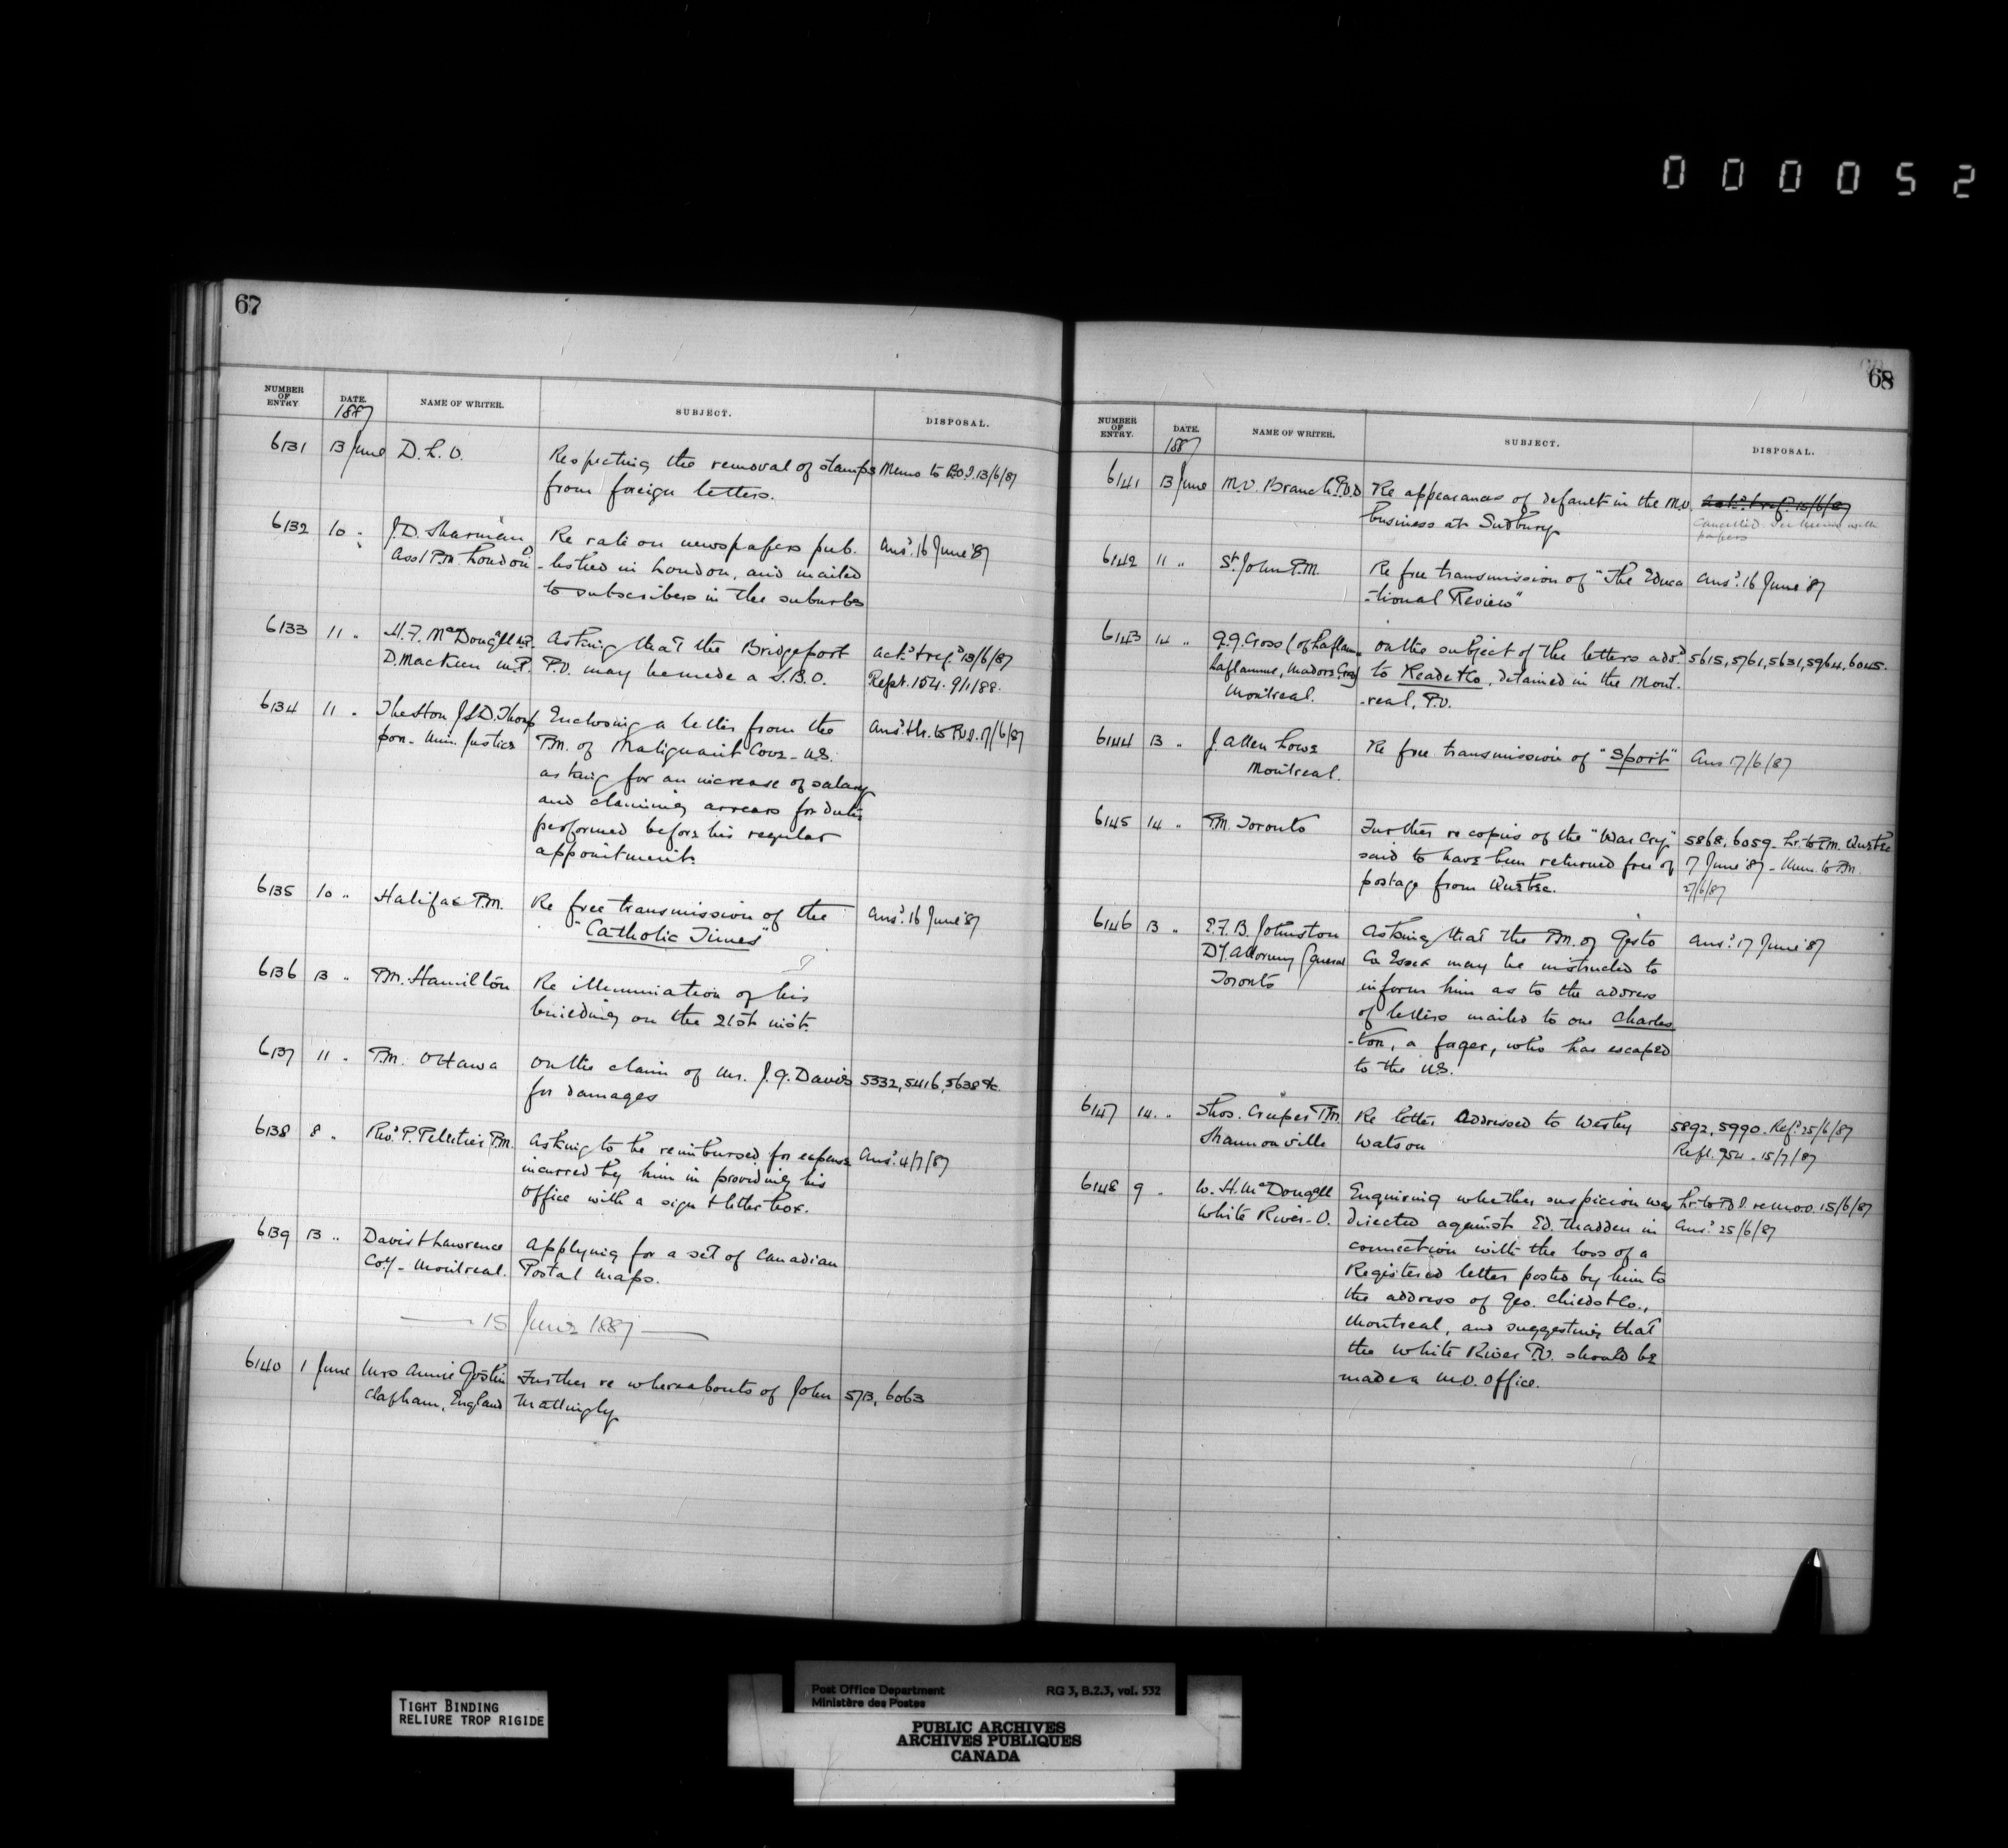 000052
67
NUMBER OF ENTRY. DATE. NAME OF WRITER. SUBJECT. DISPOSAL.
1887
6131 13 June D.L.O. Respecting the removal of stamps Memo to P.O.I. 13/6/87
from foreign letters.
6132 10 " J.D. Sharman Re rate on newspapers pub. Ansd. 16 June '87
Asst P.M. London O -lished in London, and mailed
to subscribers in the suburbs
6133 11 " H.F. McDougall M.P. Asking that the Bridgeport Ackd. & refd. 13/6/87
D. MacKeen M.P. P.O. may be made a S.B.O. Rept. 154. 9/1/88.
6134 11 " The Hon J.S.D. Thomp Enclosing a letter from the Ansd. & lr. to P.O.I. 17/6/87
son - Min. Justice P.M. of Malignant Cove - N.S.
asking for an increase of salary
and claiming arrears for duties
performed before his regular
appointment.
6135 10 " Halifax P.M. Re free transmission of the Ansd. 16 June '87
"Catholic Times"
6136 13 " P.M. Hamilton Re illumination of his
building on the 21st inst.
6137 11 " P.M. Ottawa On the claim of Mr. J.G. Davis 5332, 5416, 5638 &c.
for damages
6138 8 " Thos. P. Pelletier P.M. Asking to be reimbursed for expense Ansd. 4/7/87
incurred by him in providing his
office with a sign & letter box.
6139 13 " Davis & Lawrence Applying for a set of Canadian
Coy - Montreal. Postal maps.
15 June 1887
6140 1 June Mrs Annie Gostin Further re whereabouts of John 5713, 6063
Clapham, England Mattingly
68
NUMBER OF ENTRY. DATE. NAME OF WRITER. SUBJECT. DISPOSAL.
1887
6141 13 June M.O. Branch P.O.D Re appearances of default in the M.O. Ackd. & ref. 15/6/87
business at Sudbury Cancelled. See memo with
papers
6142 11 " St. John P.M. Re free transmission of "The Educa Ansd. 16 June '87
-tional Review"
6143 14 " G.G. Foss (of Laflam On the subject of the letters addd. 5615, 5761, 5631, 5964, 6045.
Laflamme, Madore to Reade & Co, detained in the Mont.
Montreal. -real, P.O.
6144 13 " J. Allen Lowe Re free transmission of "Sport" Ans 17/6/87
Montreal.
6145 14 " P.M. Toronto Further re copies of the "War Cry" 5868, 6059 - Lr. to P.M. Quebec
said to have been returned free of 7 June '87 - Mem. to P.M.
postage from Quebec. 27/6/87
6146 13 " E.F.B. Johnston Asking that the P.M. of Gesto Ansd. 17 June '87
Dy. Attorney General Co Essex may be instructed to
Toronto inform him as to the address
of letters mailed to one Charles
-ton, a forger, who has escaped
to the U.S.
6147 14. " Thos. Cooper P.M. Re letter addressed to Wesley 5892, 5990. Refd. 25/6/87
Shannonville Watson Refl. 954 - 15/7/87
6148 9 " W.H. McDougall Enquiring whether suspicion was Lr. to P.O.I. 15/6/87
White River - O. directed against Ed. Madden in Ansd. 25/6/87
connection with the loss of a
Registered letter posted by him to
the address of Geo. Childs & Co.,
Montreal, and suggesting that
the White River P.O. should be
made a M.O. office.
TIGHT BINDING
RELIURE TROP RIGIDE
Post Office Department RG 3, B.2.3, vol. 532
Ministère des Postes
PUBLIC ARCHIVES
ARCHIVES PUBLIQUES
CANADA